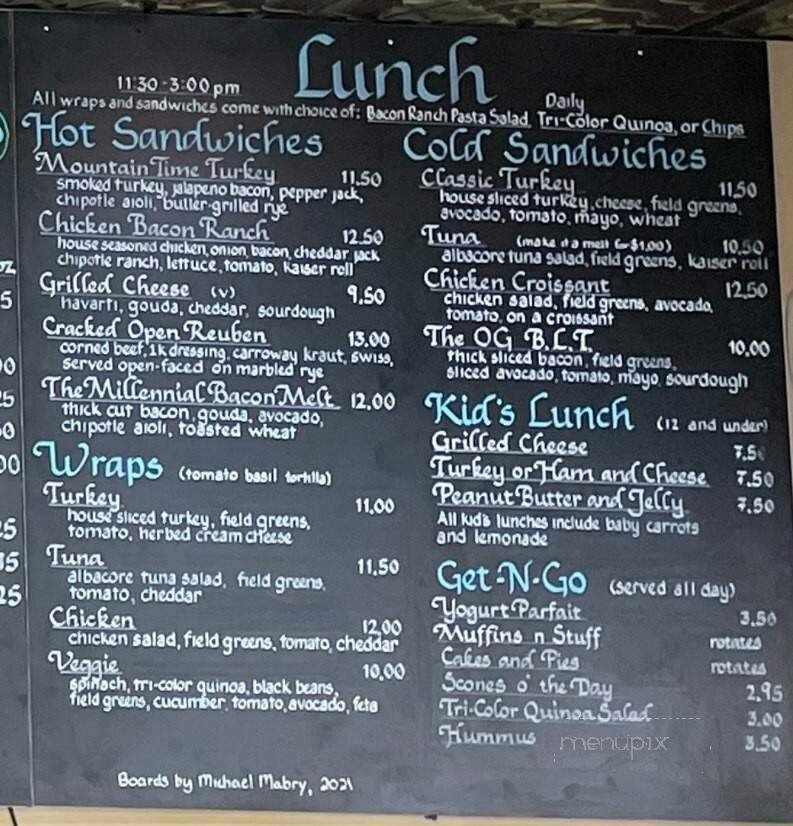 Lunch
11:30-3:00 pm
Daily
All wraps and sandwiches come with choice of: Bacon Ranch Pasta Salad, Tri-Color Quinoa, or Chips
Hot Sandwiches
Mountain Time Turkey 11.50
smoked turkey, jalapeno bacon, pepper jack,
chipotle aioli, butter-grilled rye
Chicken Bacon Ranch 12.50
house seasoned chicken, onion, bacon, cheddar jack
chipotle ranch, lettuce, tomato, kaiser roll
Grilled Cheese (v) 9.50
havarti, gouda, cheddar, sourdough
Cracked Open Reuben 13.00
corned beef, 1k dressing, carroway kraut, swiss,
served open-faced on marbled rye
The Millennial Bacon Melt 12.00
thick cut bacon, gouda, avocado,
chipotle aioli, toasted wheat
Wraps (tomato basil tortilla)
Turkey 11.00
house sliced turkey, field greens,
tomato, herbed cream cheese
Tuna 11.50
albacore tuna salad, field greens,
tomato, cheddar
Chicken 12.00
chicken salad, field greens, tomato, cheddar
Veggie 10.00
spinach, tri-color quinoa, black beans,
field greens, cucumber, tomato, avocado, feta
Boards by Michael Mabry, 2021
Cold Sandwiches
Classic Turkey 11.50
house sliced turkey, cheese, field greens,
avocado, tomato, mayo, wheat
Tuna (make it a melt for $1.00) 10.50
albacore tuna salad, field greens, kaiser roll
Chicken Croissant 12.50
chicken salad, field greens, avocado,
tomato, on a croissant
The OG B.L.T. 10.00
thick sliced bacon, field greens,
sliced avocado, tomato, mayo, sourdough
Kid's Lunch (12 and under)
Grilled Cheese 7.50
Turkey or Ham and Cheese 7.50
Peanut Butter and Jelly 7.50
All kid's lunches include baby carrots
and lemonade
Get-N-Go (served all day)
Yogurt Parfait 3.50
Muffins n Stuff rotates
Cakes and Pies rotates
Scones o' the Day 2.95
Tri-Color Quinoa Salad 3.00
Hummus 3.50
menupix